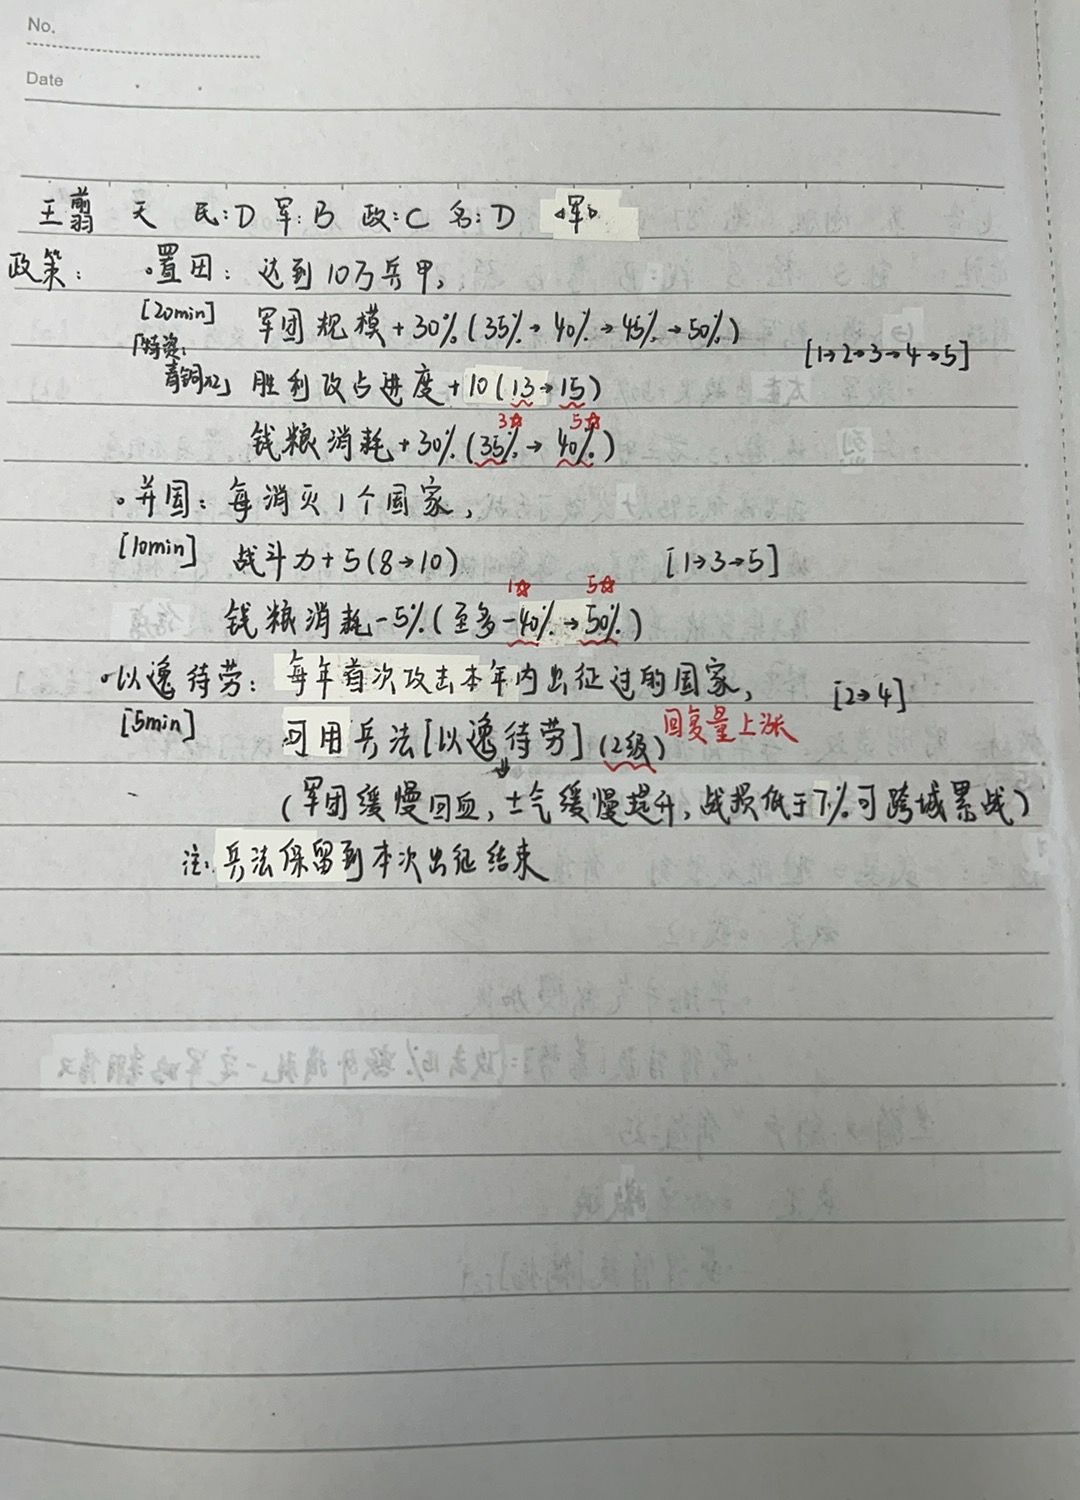 No.
Date
王翦 天 民:D 军:B 政:C 名:D 《军》
政策: 。置田: 达到10万兵甲,
[20min] 军团规模+30%(35%→40%→45%→50%)
「特资: [1→2→3→4→5]
青铜x2」 胜利攻占进度+10(13→15)
3☆ 5☆
钱粮消耗+30%(35%→40%)
。并国: 每消灭1个国家,
[10min] 战斗力+5(8→10) [1→3→5]
1☆ 5☆
钱粮消耗-5%(至多-40%→50%)
。以逸待劳: 每年首次攻击本年内出征过的国家, [2→4]
[5min] 可用兵法[以逸待劳](2级) 回复量上涨
(军团缓慢回血,士气缓慢提升,战损低于7%可跨城累战)
注: 兵法保留到本次出征结束